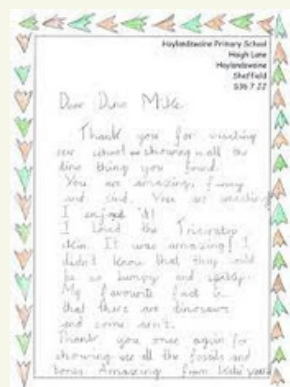 Hoylandswaine Primary School
Haigh Lane
Hoylandswaine
Sheffield
S36 7
Dear Dino Mike
Thank you for visiting
our school showing all the
dino thing you found.
You are amazing, funny
and kind. You are amazing
I enjoyed it!
I loved the
skin. It was amazing! I
didn't know that they
be so bumpy and
My favourite fact is
that there are dinosaurs
and some aren't.
Thank you once again for
showing us all the fossils and
bones. Amazing from